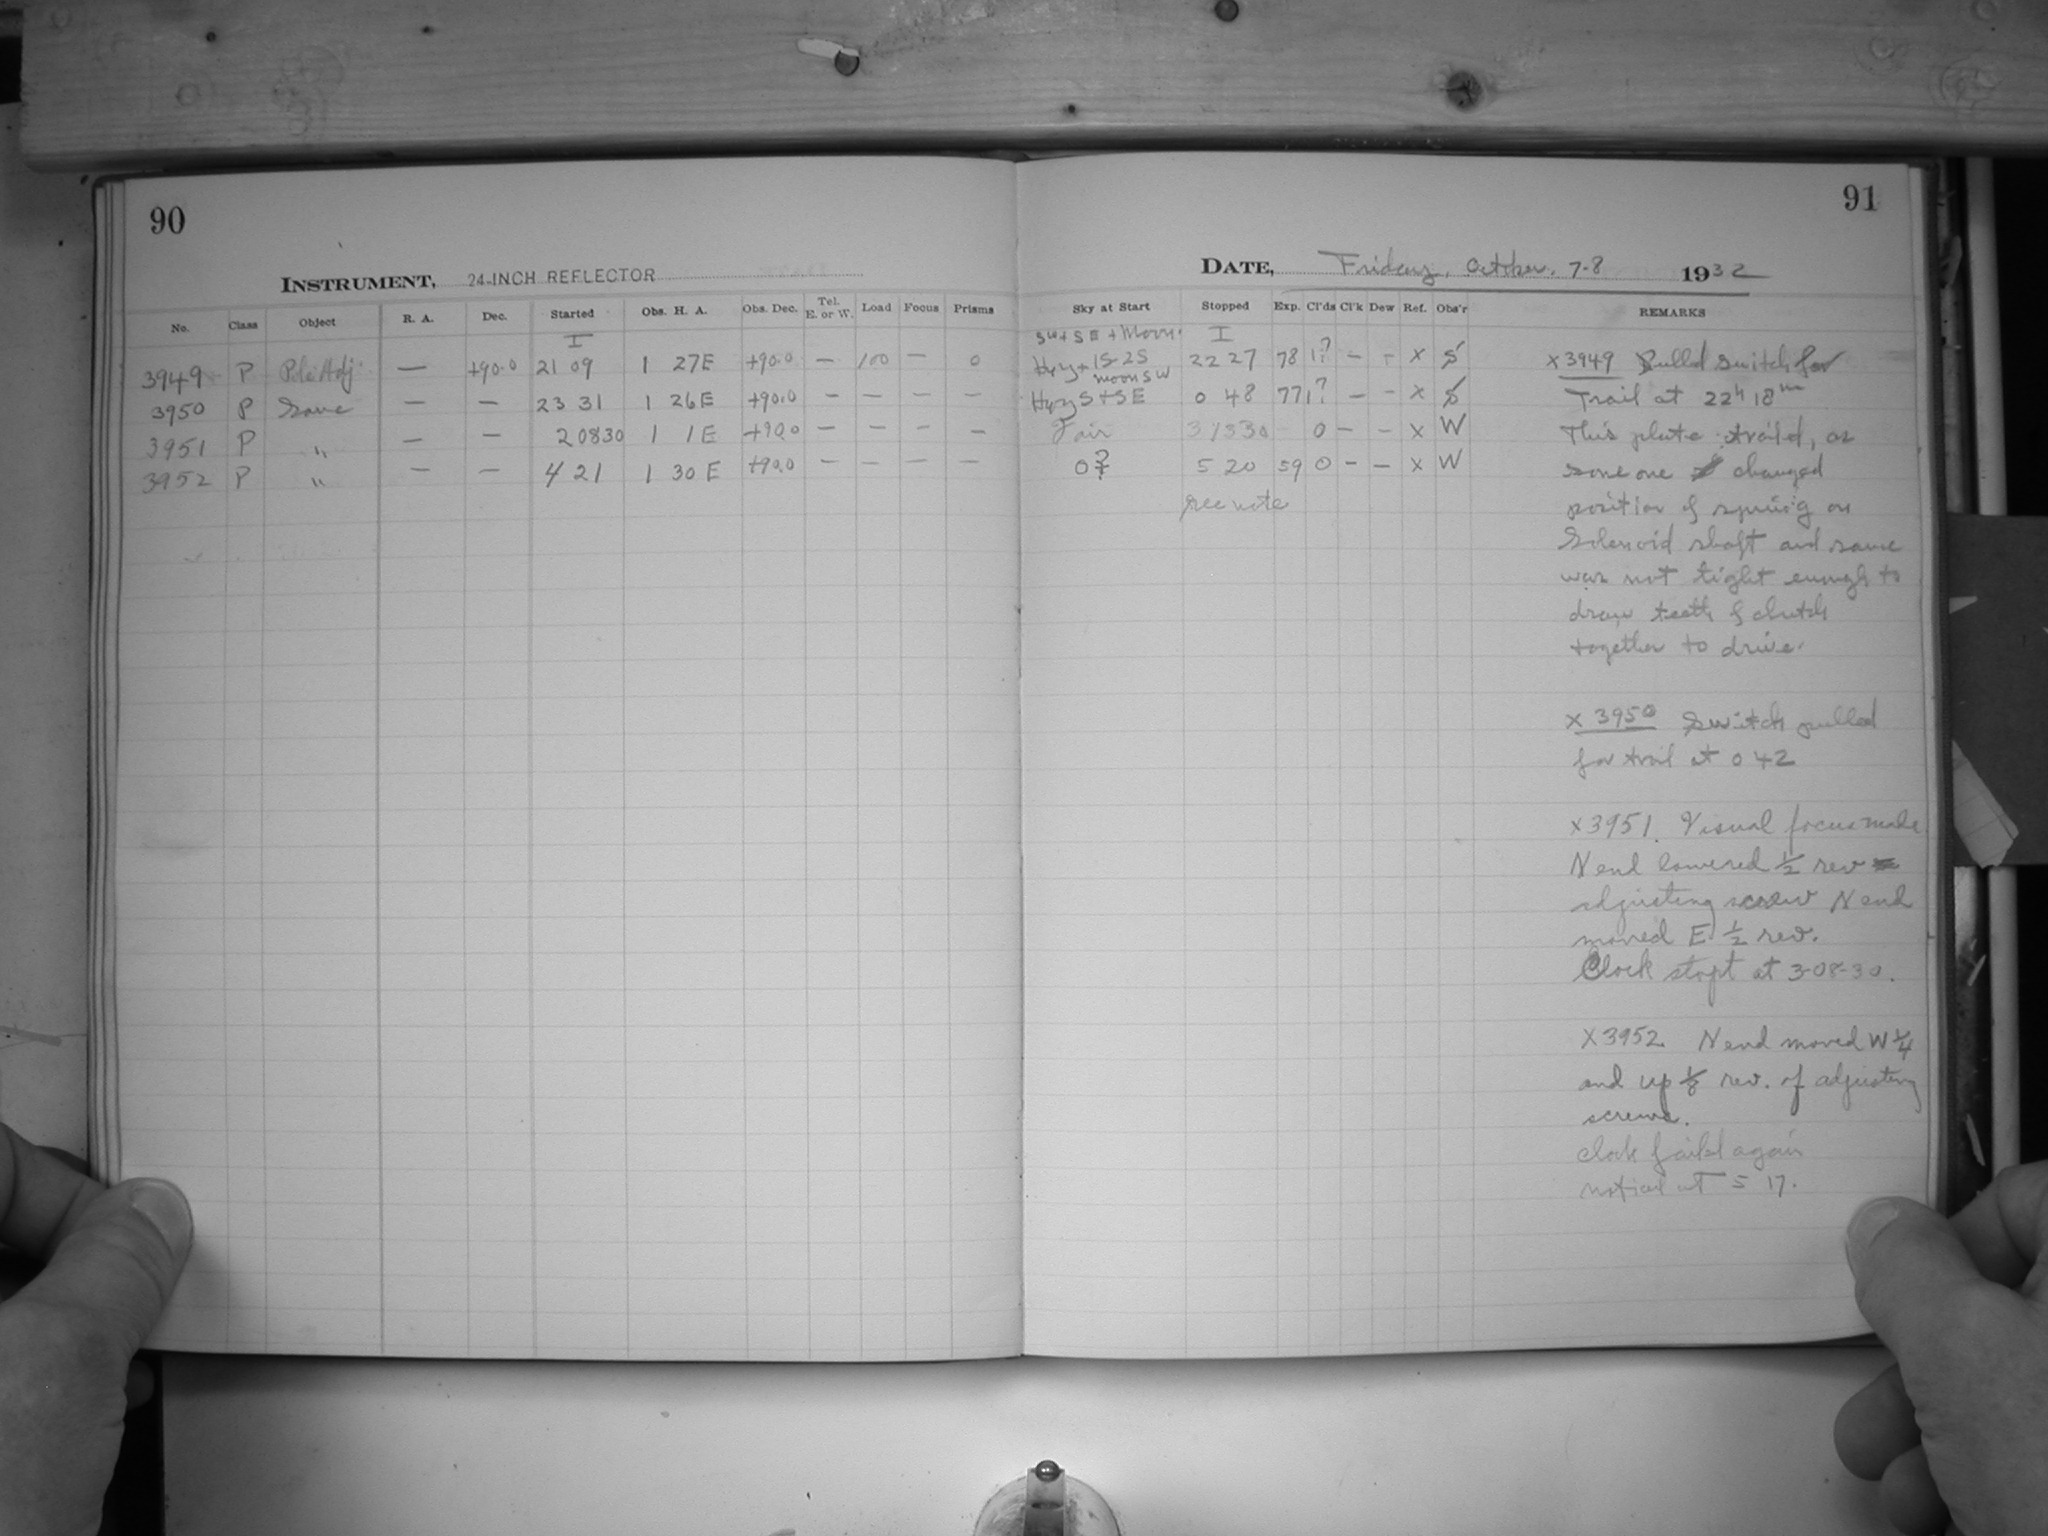 90
INSTRUMENT, 24-INCH REFLECTOR
No. Class Object R. A. Dec. Started Obs. H. A. Obs. Dec. Tel. E. or W. Load Focus Prisms
I
3949 P Pole Adj. — +90.0 21 09 1 27E +90.0 — 100 — 0
3950 P Same — — 23 31 1 26E +90.0 — — — —
3951 P " — — 2 0830 1 1E +90.0 — — — —
3952 P " — — 4 21 1 30 E +90.0 — — — —
91
DATE, Friday, October, 7-8 1932
Sky at Start Stopped Exp. Cl'ds Cl'k Dew Ref. Obs'r REMARKS
SW + SE + Moon. I
Hzy + 1S-2S 22 27 78 1? — – x S
moon SW
Hzy S + SE 0 48 77 1? — – x S
Fair 3 1330 0 – – x W
0? 5 20 59 0 – – x W
see note
x 3949 Pulled switch for
Trail at 22h 18m
This plate trailed, as
some one changed
position of spring on
Solenoid shaft and same
was not tight enough to
draw teeth of clutch
together to drive.
x 3950 Switch pulled
for trail at 0 42
x 3951. Visual focus made
N end lowered 1/2 rev
adjusting screw N end
moved E 1/2 rev.
Clock stopt at 3-08-30.
X 3952. N end moved W 1/4
and up 1/8 rev. of adjusting
screws.
clock failed again
noticed at 5 17.